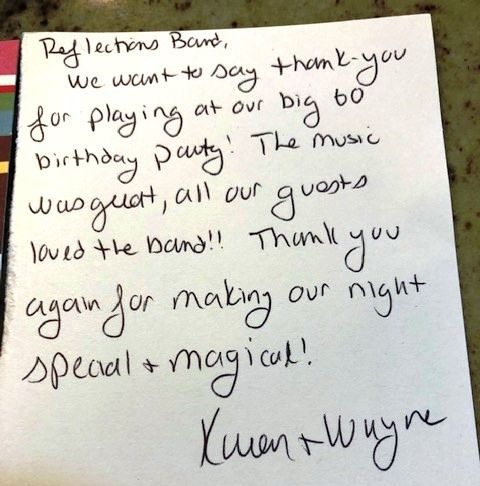 Reflections Band,
We want to say thank-you
for playing at our big 60
birthday party! The music
was great, all our guests
loved the band!! Thank you
again for making our night
special + magical!
+ Wayne